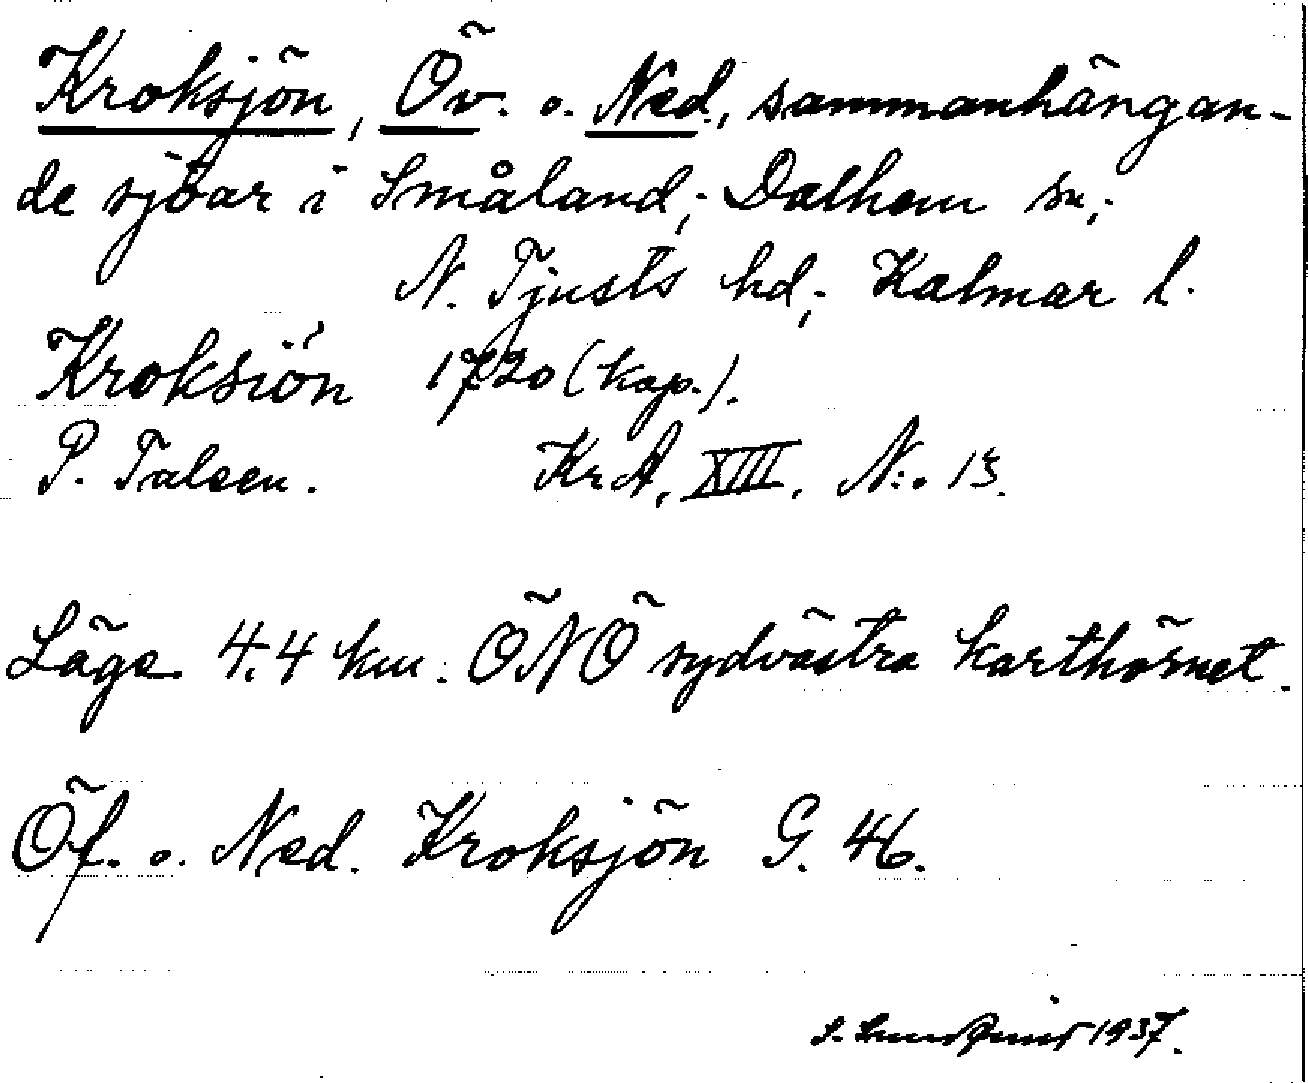 Kroksjön, Öv. o. Ned., sammanhängan-
de sjöar i Småland; Dalhem sn;
N. Tjusts hd; Kalmar l.
Kroksiön 1720 (kop.).
P. Talsen. KrA, XIII, N:o 13.
Läge 4.4 km. ÖNÖ sydvästra karthörnet.
Öf. o. Ned. Kroksjön G. 46.
1937.